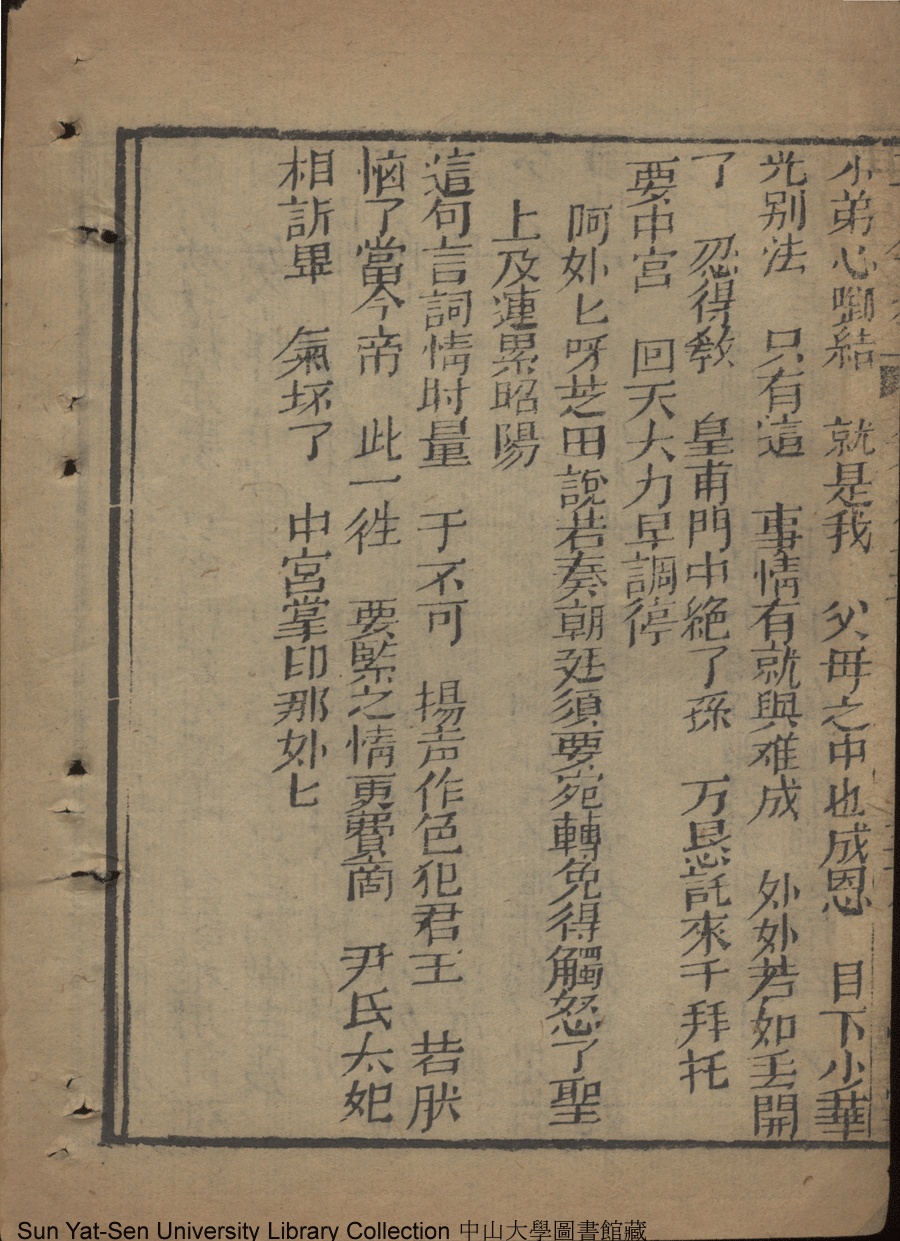 小弟心啣結　就是我　父毋之中也成恩　目下少華
光别法　只有這　事情有就與难成　外妳若如丢開
了　忍得教　皇甫門中絶了孫　万恳託來千拜托
要中宮　回天大力早調停
呵妳匕呀芝田說若奏朝廷須要宛轉免得觸怒了聖
上及連累昭陽
這句言詞情时量　于不可　揚声作色犯君王　若朕
惱了當今帝　此一徃　要緊之情更費商　尹氏太妃
相訴畢　氣坏了　中宮掌印那妳匕
Sun Yat-Sen University Library Collection 中山大學圖書館藏